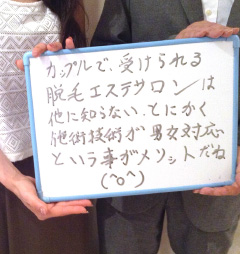 カップルで、受けられる
脱毛エステサロンは
他に知らない、とにかく
施術技術が男女対応
という事がメリットだね
(^o^)